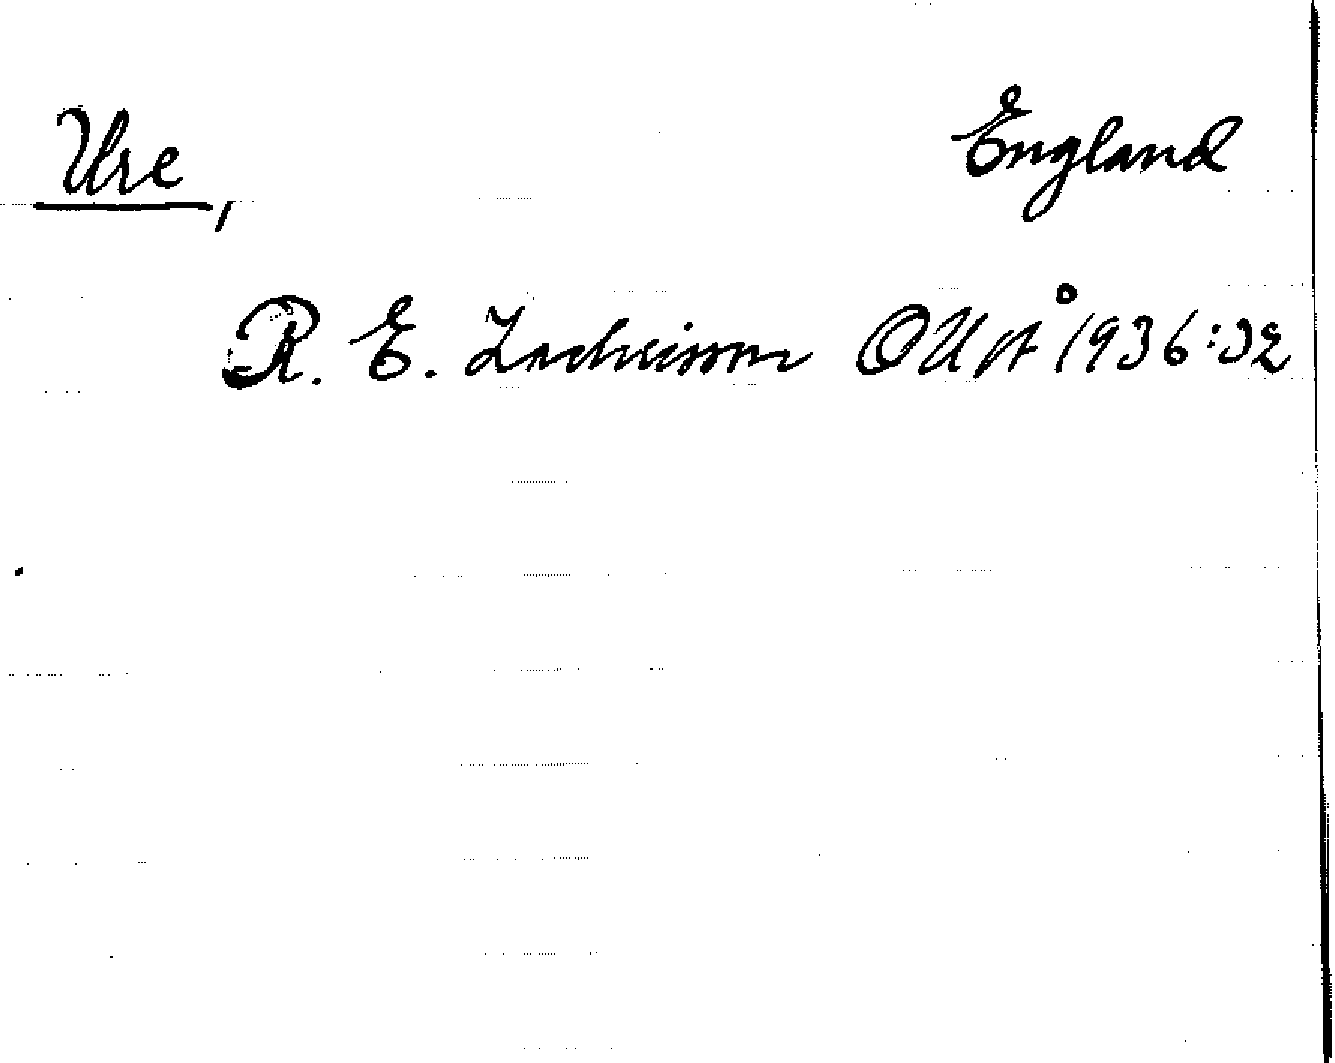 Ure, England
R. E. Zachrisson OUÅ 1936: